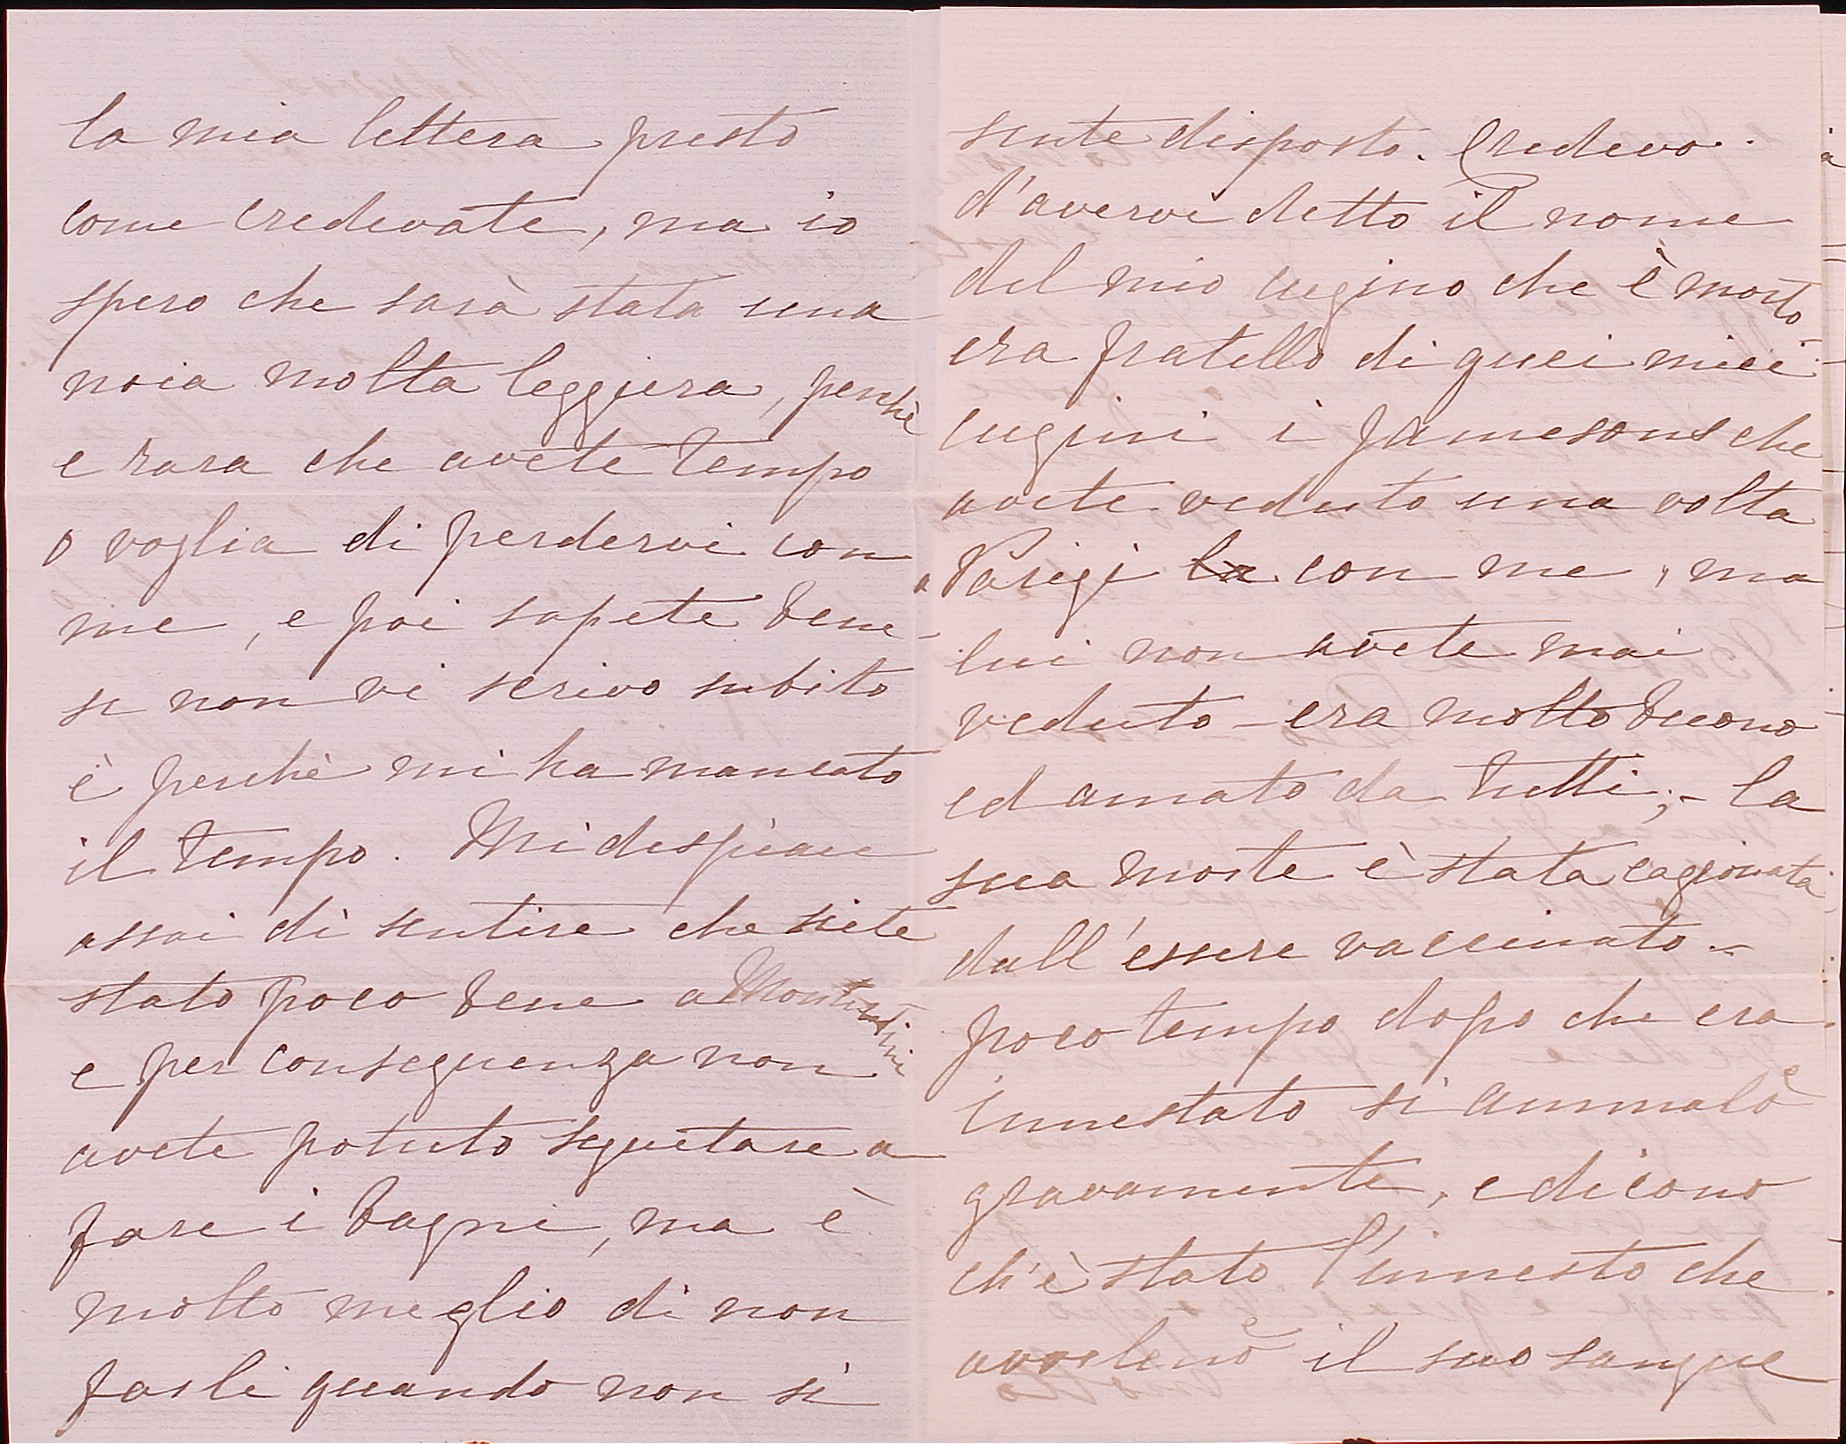 la mia lettera presto
come credevate, ma io
spero che sarà stata una
noia molta leggiera, perchè
e rara che avete tempo
o voglia di perdervi con
me, e poi sapete bene
se non vi scrivo subito
è perchè mi ha mancato
il tempo. Mi dispiace
assai di sentire che siete
stato poco bene a Montecatini
e per conseguenza non
avete potuto seguitare a
fare i bagni, ma è
molto meglio di non
farli quando non si
sente disposto. Credevo
d'avervi detto il nome
del mio cugino che è morto
era fratello di quei miei
cugini i Jamesons che
avete veduto una volta
a Parigi la con me, ma
lui non avete mai
veduto – era molto buono
ed amato da tutti; – la
sua morte è stata cagionata
dall'essere vaccinato –
poco tempo dopo che era
innestato si ammalò
gravamente, e dicono
ch'è stato l'innesto che
avvelenò il suo sangue